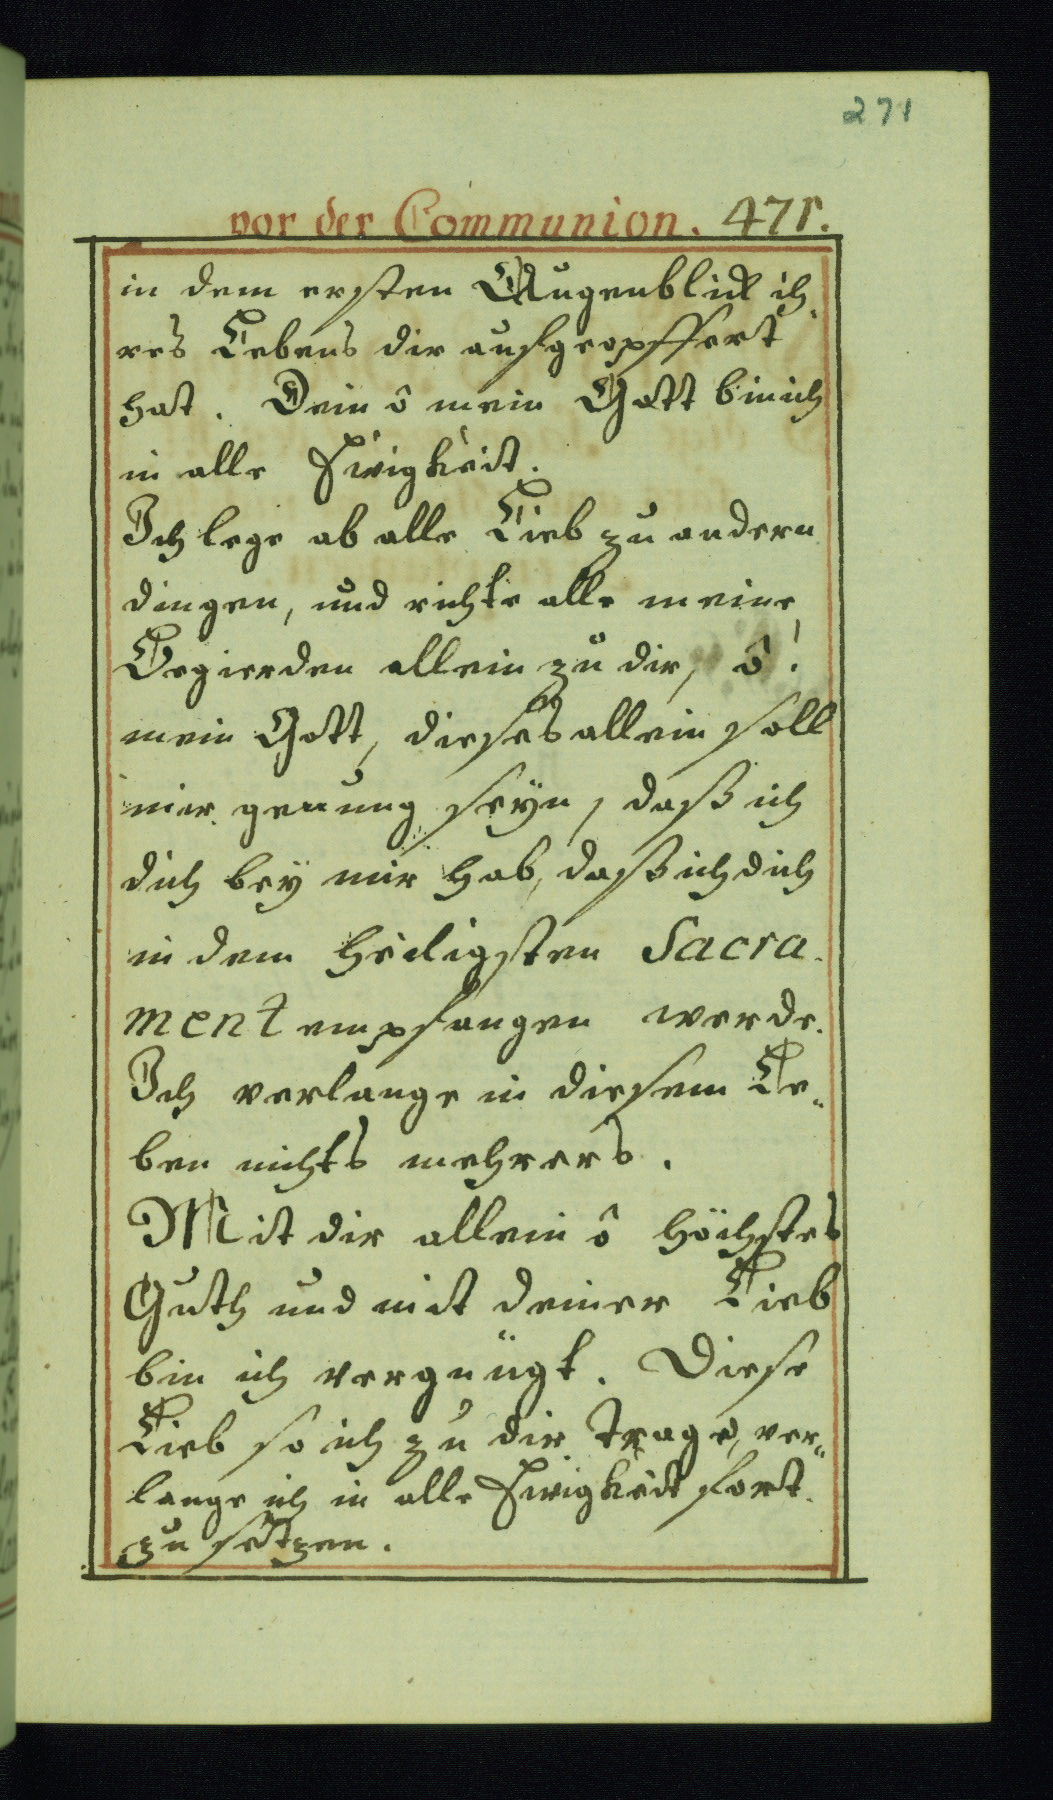 271
vor der Communion. 471.
in dem ersten Augenblick ih-
res Lebens dir aufgeopffert
hat. Dein ô mein Gott bin ich
in alle Ewigkeit.
Ich lege ab alle Lieb zu andern
dingen, und richte alle meine
Begierden allein zu dir, ô!
mein Gott, dieses allein soll
mir genung seÿn, daß ich
dich beÿ mir hab, daß ich dich
in dem heiligsten Sacra-
ment empfangen werde.
Ich verlange in diesem Le-
ben nichts mehrers.
Mit dir allein ô höchstes
Guth und mit deiner Lieb
bin ich vergnügt. Diese
Lieb so ich zu dir trage, ver-
lange ich in alle Ewigkeit fort-
zu setzen.